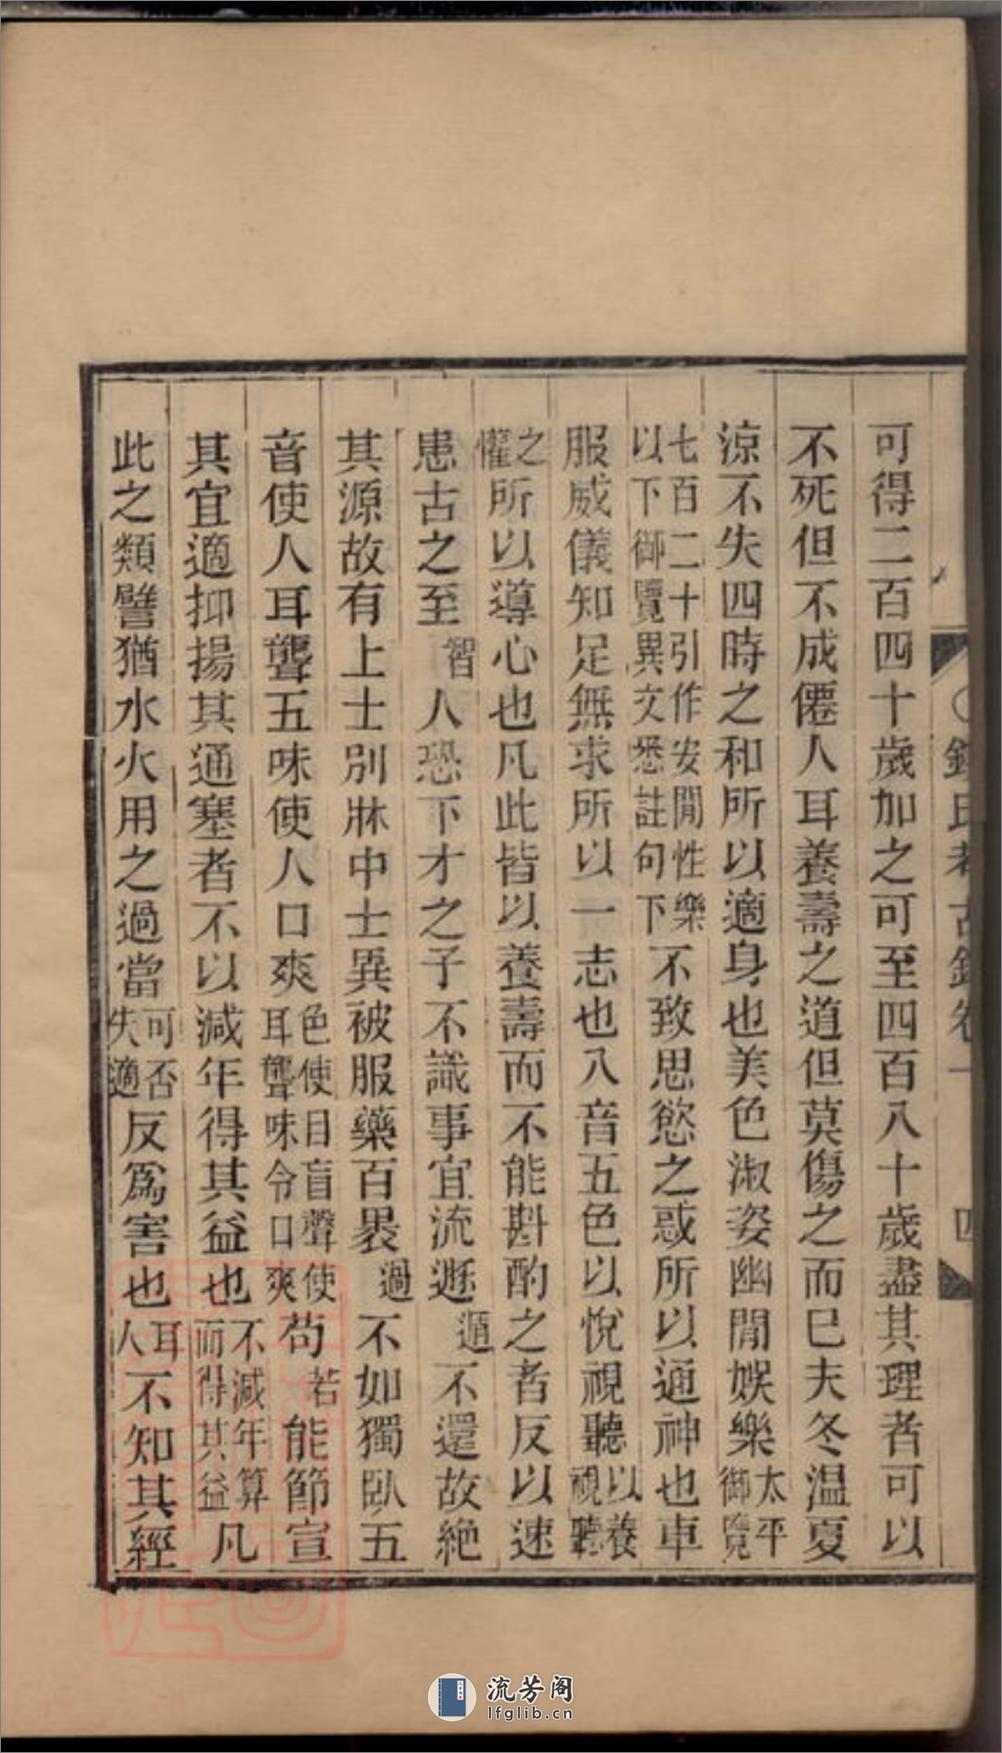 可得二百四十歲加之可至四百八十歲盡其理者可以
不死但不成僊人耳養壽之道但莫傷之而已夫冬温夏
涼不失四時之和所以適身也美色淑姿幽閒娛樂太平御覽
七百二十引作安閒性樂以下御覽異文悉註句下不致思慾之惑所以通神也車
服威儀知足無求所以一志也八音五色以悅視聽以養視聽
之懽所以導心也凡此皆以養壽而不能斟酌之者反以速
患古之至智人恐下才之子不識事宜流遯遁不還故絶
其源故有上士別牀中士異被服藥百褁過不如獨臥五
音使人耳聾五味使人口爽色使目盲聲使耳聾味令口爽苟若能節宣
其宜適抑揚其通塞者不以減年得其益也不減年算而得其益凡
此之類譬猶水火用之過當可否失適反爲害也耳人不知其經
錢氏考古錄卷一
四
流芳阁
lfglib.cn